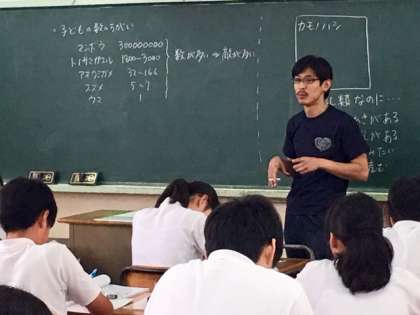 ・子どもの数のちがい
マンボウ 300000000
トノサマガエル 1800-3000
アオウミガメ 32-166
スズメ 5-7
ウマ 1
数が多い⇒敵が多い
カモノハシ
類なのに…
がある
がある
みたい
産む